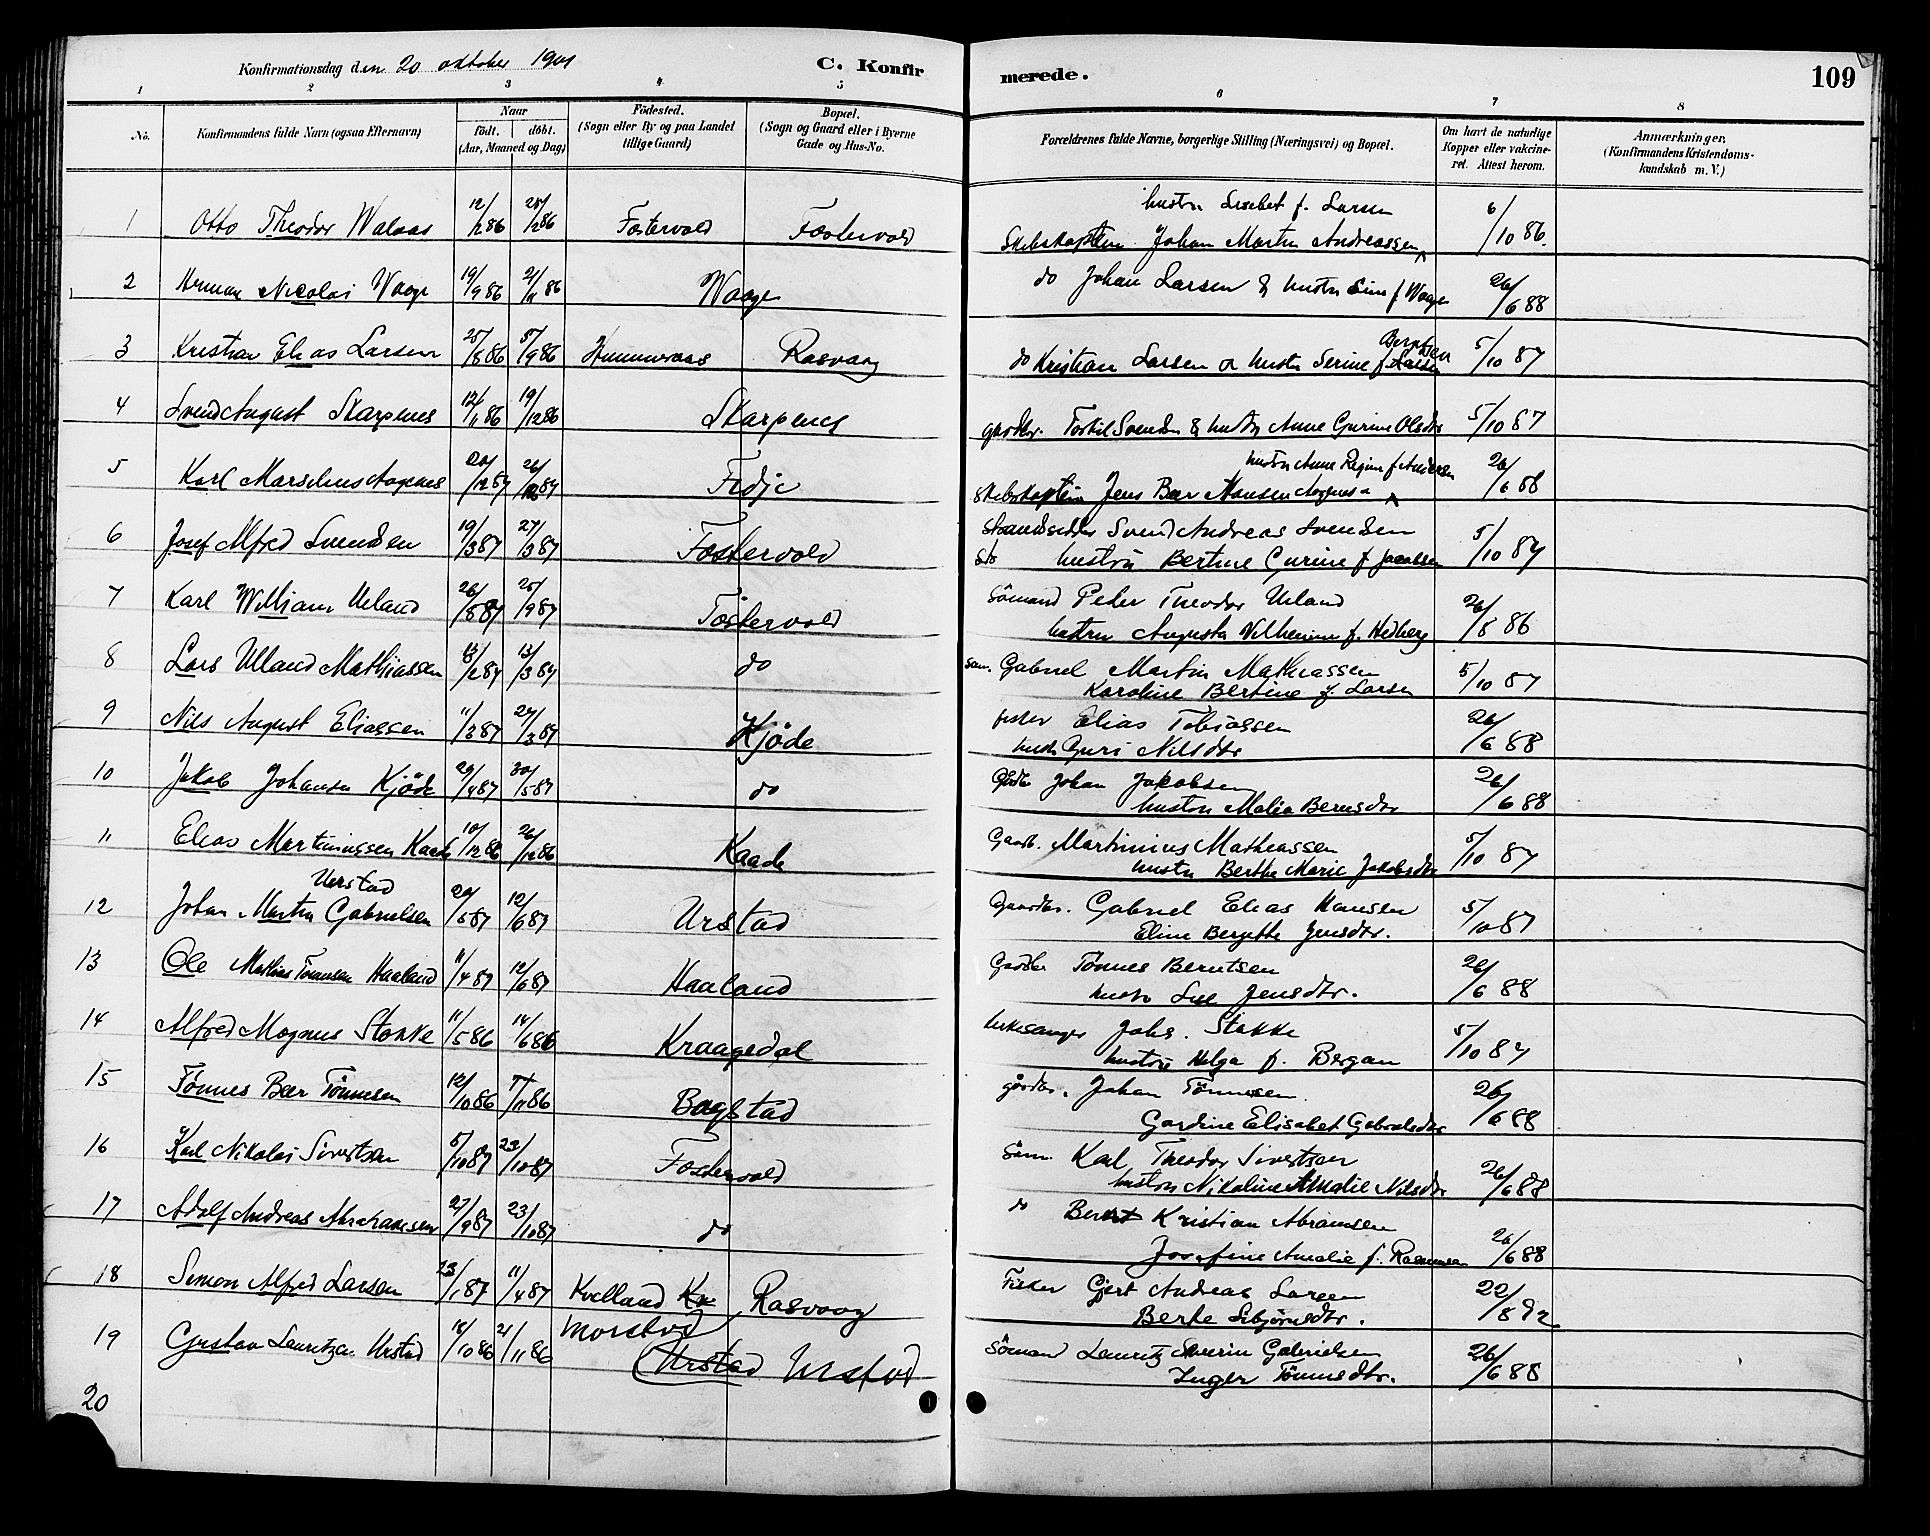 Konfirmationsdag den 20 oktober 1901
C. Konfirmerede.
109
1 2 3 4 5 6 7 8
No.
Konfirmandens fulde Navn (ogsaa Efternavn)
Naar
födt. döbt.
(Aar, Maaned og Dag)
Födested.
(Sogn eller By og paa Landet
tillige Gaard)
Bopæl.
(Sogn og Gaard eller i Byerne
Gade og Hus-No.
Forældrenes fulde Navne, borgerlige Stilling (Næringsvei) og Bopæl.
Om havt de naturlige
Kopper eller vakcine-
ret. Attest herom.
Anmærkninger.
(Konfirmandens Kristendoms-
kundskab m. V.)
hustru Lisebet f. Larsen
1 Otto Theodor Walaas 12/12 86 28/12 86 Fostervold Fostervold Skibskaptein Johan Martin Andreassen 6/10 86.
2 Herman Nicolai Waage 19/9 86 21/11 86 Waage do Johan Larsen & hustru Sine f Waage 26/6 88
Berntsen
3 Kristian Elias Larsen 25/8 86 5/9 86 Rasvaag do Kristian Larsen & hustru Serine f. Larsen 5/10 87
4 Svend August Skarpenes 12/11 86 19/12 86 Skarpenes gaardbr. Torkil Svendsen & hustru Anne Gurine Olsdtr 5/10 87
hustru Anne Regine f. Andersen
5 Karl Marselius Aagenes 26/12 87 Fedje Skibskaptein Jens Bær Hansen Aagenes 26/6 88
6 Josef Alfred Svendsen 19/3 87 27/3 87 Fostervold Strandsidder Svend Andreas Svendsen 5/10 87
hustru Bertine Gurine f Jacobsen
7 Karl William Ueland 26/8 87 25/9 87 Fostervold Sömand Peder Theodor Ueland 26/8 86
hustru Augusta Vilhelmine f. Hedberg
8 Lars Ulland Mathiassen 13/2 87 13/3 87 do Söm. Gabriel Martin Mathiassen 5/10 87
Karoline Bertine f. Larsen
9 Nils August Eliassen 11/3 87 27/3 87 Kjöde fisker Elias Tobiassen 26/6 88
hustru Guri Nilsdtr
10 Jakob Johansen Kjöde 29/4 87 30/5 87 do Gbr Johan Jakobsen 26/6 88
hustru Malia Berntsdtr
11 Elias Martiniussen Kaade 10/12 86 26/12 86 Kaade Gaardb. Martinius Mathiassen 5/10 87
hustru Berthe Marie Jakobsdtr
Urstad
12 Johan Martin Gabrielsen 29/5 87 12/6 87 Urstad Gaardbr. Gabriel Elias Hansen 5/10 87
Eline Bergitte Jensdtr.
13 Ole Mathias Tönnesen Haaland 11/4 87 12/6 87 Haaland Gaardbr Tönnes Berntsen 26/6 88
hustru Sille Jensdtr.
14 Alfred Magnus Stokke 11/5 86 14/6 86 Kraagedal kirkesanger Johs. Stokke 5/10 87
hustru Helga f. Bergan
15 Tönnes Bær Tönnesen 12/10 86 7/11 86 Bagstad gårdbr. Johan Tönnesen. 26/6 88
Gardine Elisabet Gabrielsdtr
16 Karl Nikolai Sivertsen 5/10 87 23/10 87 Fostervold Söm. Karl Theodor Sivertsen 26/6 88
hustru Nikoline Amalie Nilsdtr
17 Adolf Andreas Abrahamsen 27/9 87 23/10 87 do do Bernt Kristian Abramsen 26/6 88
Josefine Amalie f. Rasmussen
18 Simon Alfred Larsen 23/1 87 11/4 87 Kvelland Rasvaag Fisker Gjert Andreas Larsen 22/8 92
Berte Sibjörnsdtr.
19 Gustav Lauritzen Urstad 18/10 86 21/11 86 Urstad Urstad Sömand Lauritz Severin Gabrielsen 26/6 88
Inger Tönnesdtr.
20